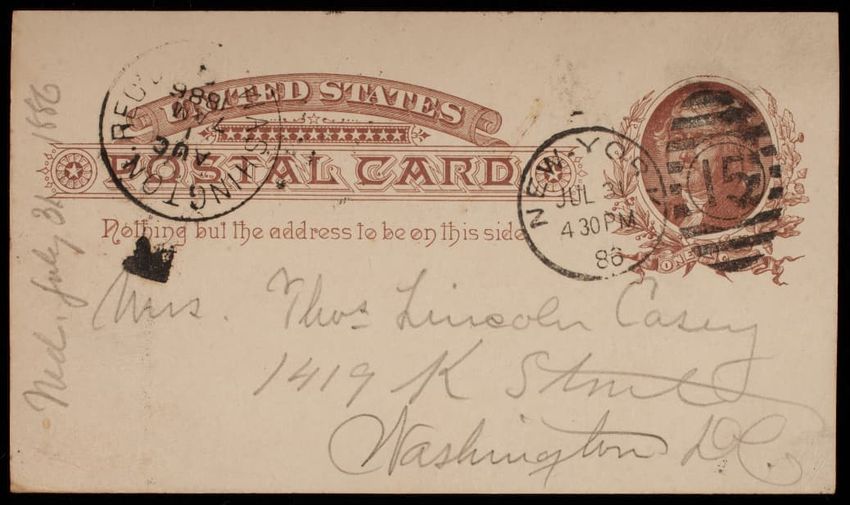 UNITED STATES
POSTAL CARD
Nothing but the address to be on this side
ONE
WASHINGTON. REC'D
AUG
1886
NEW YORK
JUL 31
4 30 PM
86
15
Mrs. Thos Lincoln Casey
1419 K Street
Washington D.C.
Ned. July 31 1886